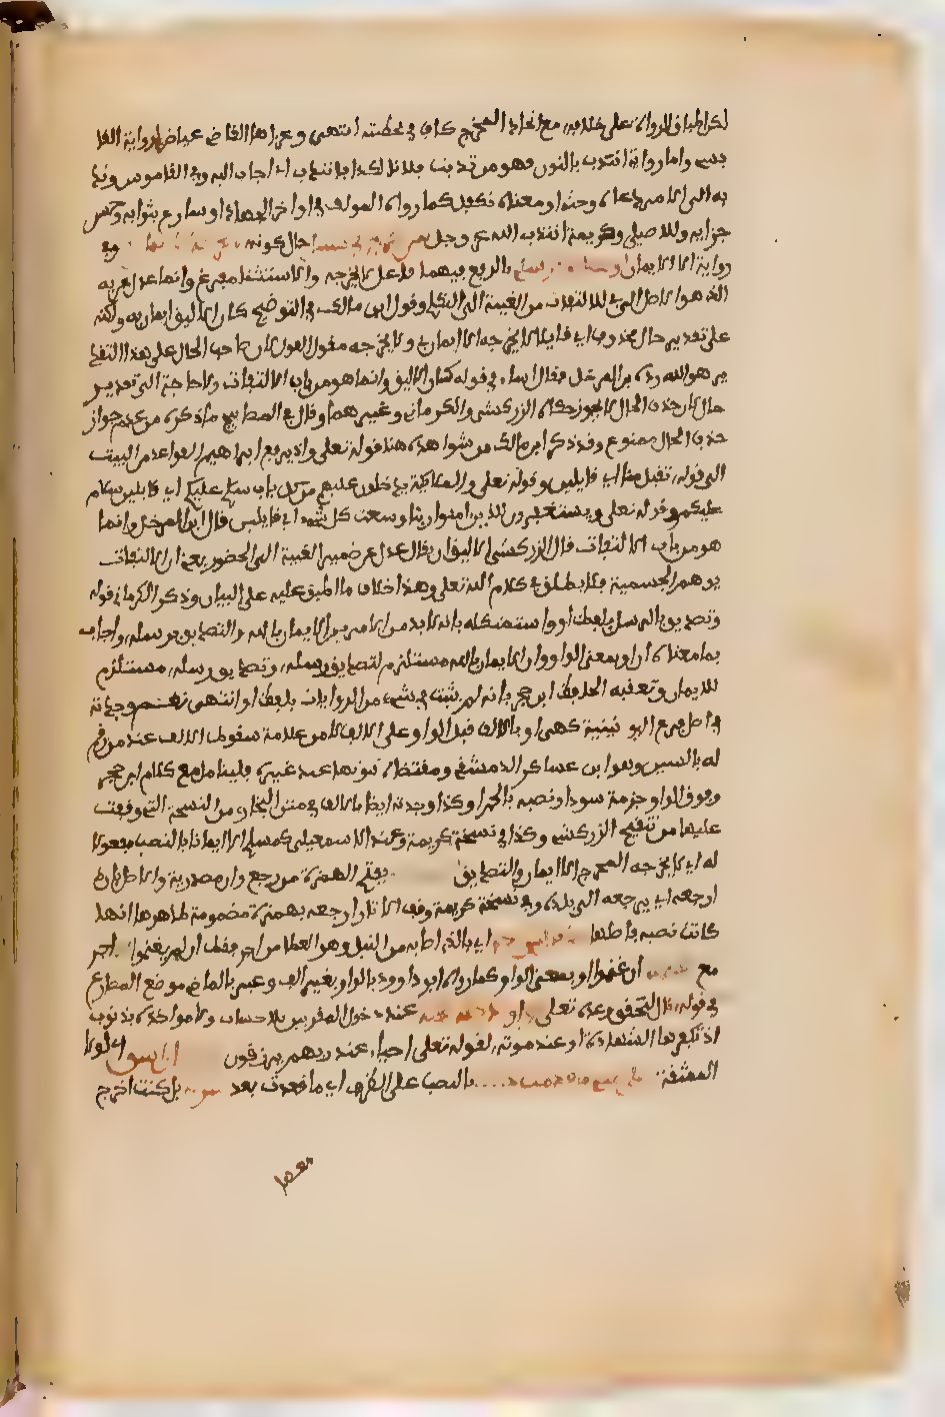 لكن اطباق الرواة على خلافه مع اتحاد المخرج كاف في تخطئته انتهى وعزاها القاضي عياض لرواية القا
بسي واما رواية انتدب بالنون فهو من ندبت فلانا لكذا فانتدب اي اجاب اليه وفي القاموس وندبه
به الى الامر دعاه وحثه او معناه تكفل كما رواه المولف في اواخر الجهاد او سارع بثوابه وحسن
جزايه وللاصيلي وكريمة انتدب الله عز وجل لمن خرج في سبيله حال كونه وفي
رواية الا الايمان بالرفع فيهما فاعل لا يخرجه والاستثناء مفرغ وانما عدل عن به
الذي هو الاصل الى بي للالتفات من الغيبة الى التكلم وقول ابن مالك في التوضيح كان الاليق ايمان به ولكنه
على تقدير حال محذوف اي قايلا لا يخرجه الا ايمان بي ولا يخرجه مقول القول لان صاحب الحال على هذا التقد
ير هو الله رده ابن المرحل فقال اساء في قوله كان الاليق وانما هو من باب الالتفات ولا حاجة الى تقدير
حال لان حذف الحال لا يجوز حكاه الزركشي والكرماني وغيرهما وقال في المصابيح ما ذكره من عدم جواز
حذف الحال ممنوع وقد ذكر ابن مالك من شواهده هنا قوله تعلى واذ يرفع ابراهيم القواعد من البيت
الى قوله تقبل منا اي قايلين وقوله تعلى والملائكة يدخلون عليهم من كل باب سلام عليكم اي قايلين سلام
عليكم وقوله تعلى ويستغفرون للذين امنوا ربنا وسعت كل شيء اي قايلين قال ابن المرحل وانما
هو من باب الالتفات قال الزركشي الاليق ان يقال عدل عن ضمير الغيبة الى الحضور يعني ان الالتفات
يوهم الجسمية فلا يطلق في كلام الله تعلى وهذا خلاف ما اطبق عليه علماء البيان وذكر الكرماني قوله
وتصديق برسلي بلفظ او واستشكله بانه لا بد من الامرين الايمان بالله والتصديق برسله واجاب
بما معناه ان او بمعنى الواو وان الايمان بالله مستلزم لتصديق رسله وتصديق رسله مستلزم
للايمان وتعقبه الحافظ ابن حجر بانه لم يثبت في شيء من الروايات بلفظ او انتهى نعم وجدته
في اصل فرع اليونينية كهي او بالالف قبل الواو وعلى الالف لا من علامة سقوط الالف عند من رقم
له بالسين وهو ابن عساكر الدمشقي ومقتضاه ثبوتها عند غيره فليتامل مع كلام ابن حجر
وفوق الواو جزمة سودا ونصبه بالحمرا وكذا وجدته ايضا بالالف في متن البخاري من النسخة التي وقفت
عليها من تنقيح الزركشي وكذا في نسخة كريمة وعند الاسمعيلي كمسلم الا ايمانا بالنصب مفعول
له اي لا يخرجه المخرج الا الايمان والتصديق بفتح الهمزة من رجع وان مصدرية والاصل بان
ارجعه اي يرجعه الى بلده وفي نسخة كريمة وقف الاتار ارجعه بهمزة مضمومة ظاهرها انها
كانت نصبه فاصلحها اي بالذي اصابه من النيل وهو العطا من اجر فقط ان لم يغنموا اجر
مع ان غنموا او بمعنى الواو كما رواه ابو داوود بالواو بغير الف وعبر بالماضي موضع المضارع
في قوله نال لتحقق وعده تعلى عند دخول المقربين بلا حساب ولا مواخذة بذنوب
اذ تكفرها الشهادة او عند موته لقوله تعلى احياء عند ربهم يرزقون لولا
المشقة بالنصب على الظرف اي ما قعدت بعد بل كنت اخرج
معها